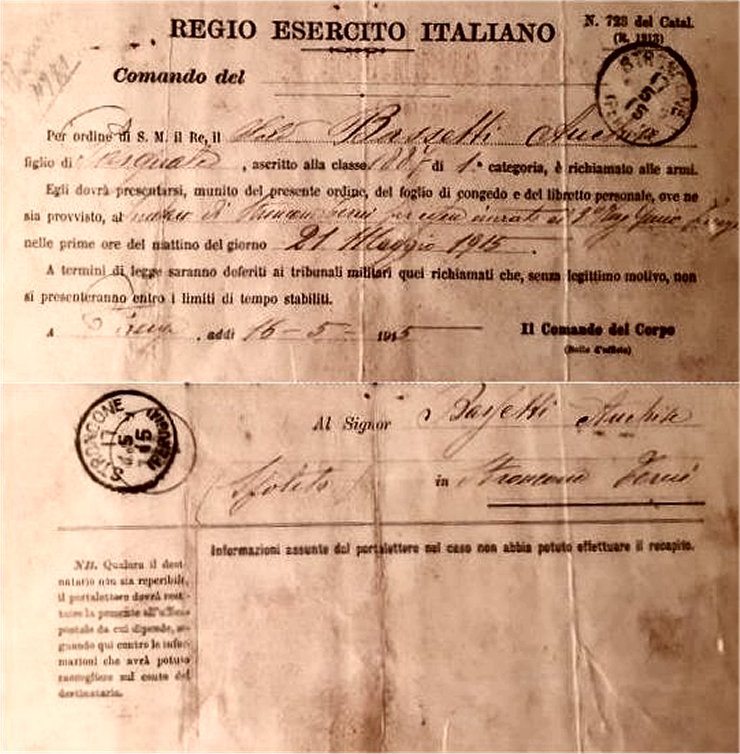 REGIO ESERCITO ITALIANO
N. 723 del Catal.
(R. 1913)
Comando del
STRONCONE
17
5
15
Per ordine di S. M. il Re, il Bassetti
figlio di Pasquale, ascritto alla classe 1887 di 1ª categoria, è richiamato alle armi.
Egli dovrà presentarsi, munito del presente ordine, del foglio di congedo e del libretto personale, ove ne
sia provvisto, al di
nelle prime ore del mattino del giorno 21 Maggio 1915.
A termini di legge saranno deferiti ai tribunali militari quei richiamati che, senza legittimo motivo, non
si presenteranno entro i limiti di tempo stabiliti.
A , addì 16-5- 1915
Il Comando del Corpo
(Bollo d'ufficio)
STRONCONE
17
5
15
(PERUGIA)
Al Signor Bassetti
(Spoleto) in Stroncone Terni
Informazioni assunte dal portalettere nel caso non abbia potuto effettuare il recapito.
NB. Qualora il desti-
natario non sia reperibile,
il portalettere dovrà resti-
tuire la presente all'ufficio
postale da cui dipende, se-
gnando qui contro le infor-
mazioni che avrà potuto
raccogliere sul conto del
destinatario.